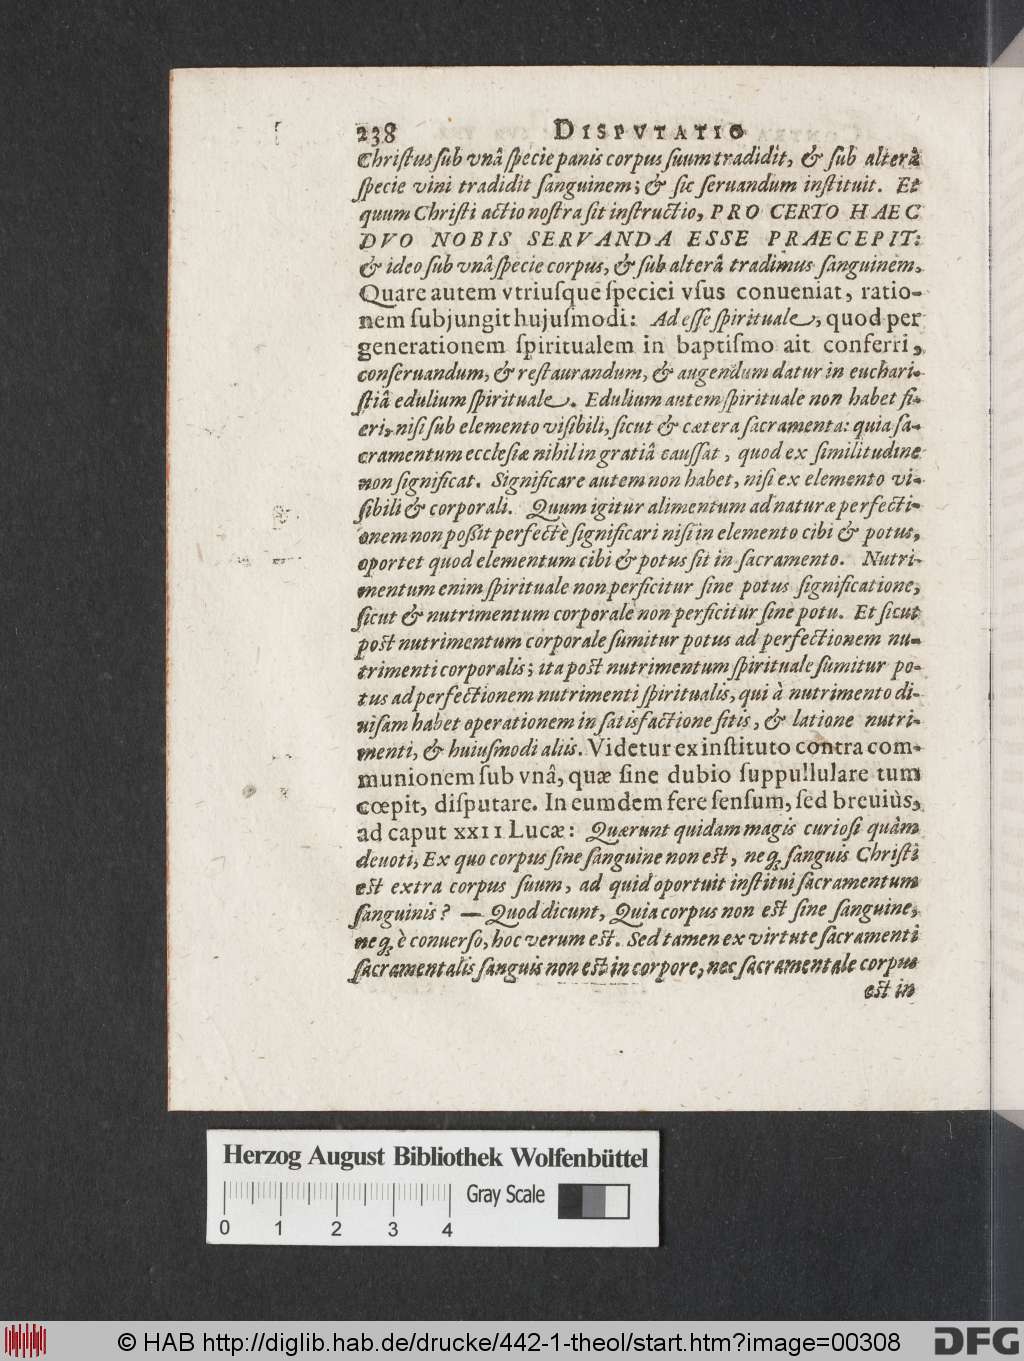 238 DISPVTATIO
Chriſtus ſub vnâ ſpecie panis corpus ſuum tradidit, & ſub alterâ
ſpecie vini tradidit ſanguinem; & ſic ſeruandum inſtituit. Et
quum Chriſti actio noſtra ſit inſtructio, PRO CERTO HAEC
DVO NOBIS SERVANDA ESSE PRAECEPIT:
& ideo ſub vnâ ſpecie corpus, & ſub alterâ tradimus ſanguinem.
Quare autem vtriuſque ſpeciei vſus conueniat, ratio-
nem ſubjungit hujuſmodi: Ad eſſe ſpirituale, quod per
generationem ſpiritualem in baptiſmo ait conferri,
conſeruandum, & reſtaurandum, & augendum datur in euchari-
ſtiâ edulium ſpirituale. Edulium autem ſpirituale non habet fi-
eri, niſi ſub elemento viſibili, ſicut & cætera ſacramenta: quia ſa-
cramentum eccleſiæ nihil in gratiâ cauſſat, quod ex ſimilitudine
non ſignificat. Significare autem non habet, niſi ex elemento vi-
ſibili & corporali. Quum igitur alimentum ad naturæ perfecti-
onem non poßit perfectè ſignificari niſi in elemento cibi & potus,
oportet quod elementum cibi & potus ſit in ſacramento. Nutri-
mentum enim ſpirituale non perficitur ſine potus ſignificatione,
ſicut & nutrimentum corporale non perficitur ſine potu. Et ſicut
poſt nutrimentum corporale ſumitur potus ad perfectionem nu-
trimenti corporalis; ita poſt nutrimentum ſpirituale ſumitur po-
tus ad perfectionem nutrimenti ſpiritualis, qui à nutrimento di-
uiſam habet operationem in ſatisfactione ſitis, & latione nutri-
menti, & huiuſmodi aliis. Videtur ex inſtituto contra com-
munionem ſub vnâ, quæ ſine dubio ſuppullulare tum
cœpit, diſputare. In eumdem fere ſenſum, ſed breuiùs,
ad caput XXII Lucæ: Quærunt quidam magis curioſi quàm
deuoti, Ex quo corpus ſine ſanguine non eſt, neq; ſanguis Chriſti
eſt extra corpus ſuum, ad quid oportuit inſtitui ſacramentum
ſanguinis? — Quod dicunt, Quia corpus non eſt ſine ſanguine,
neq; è conuerſo, hoc verum eſt. Sed tamen ex virtute ſacramenti
ſacramentalis ſanguis non eſt in corpore, nec ſacramentale corpus
eſt in
Herzog August Bibliothek Wolfenbüttel
Gray Scale
0 1 2 3 4
© HAB http://diglib.hab.de/drucke/442-1-theol/start.htm?image=00308 DFG